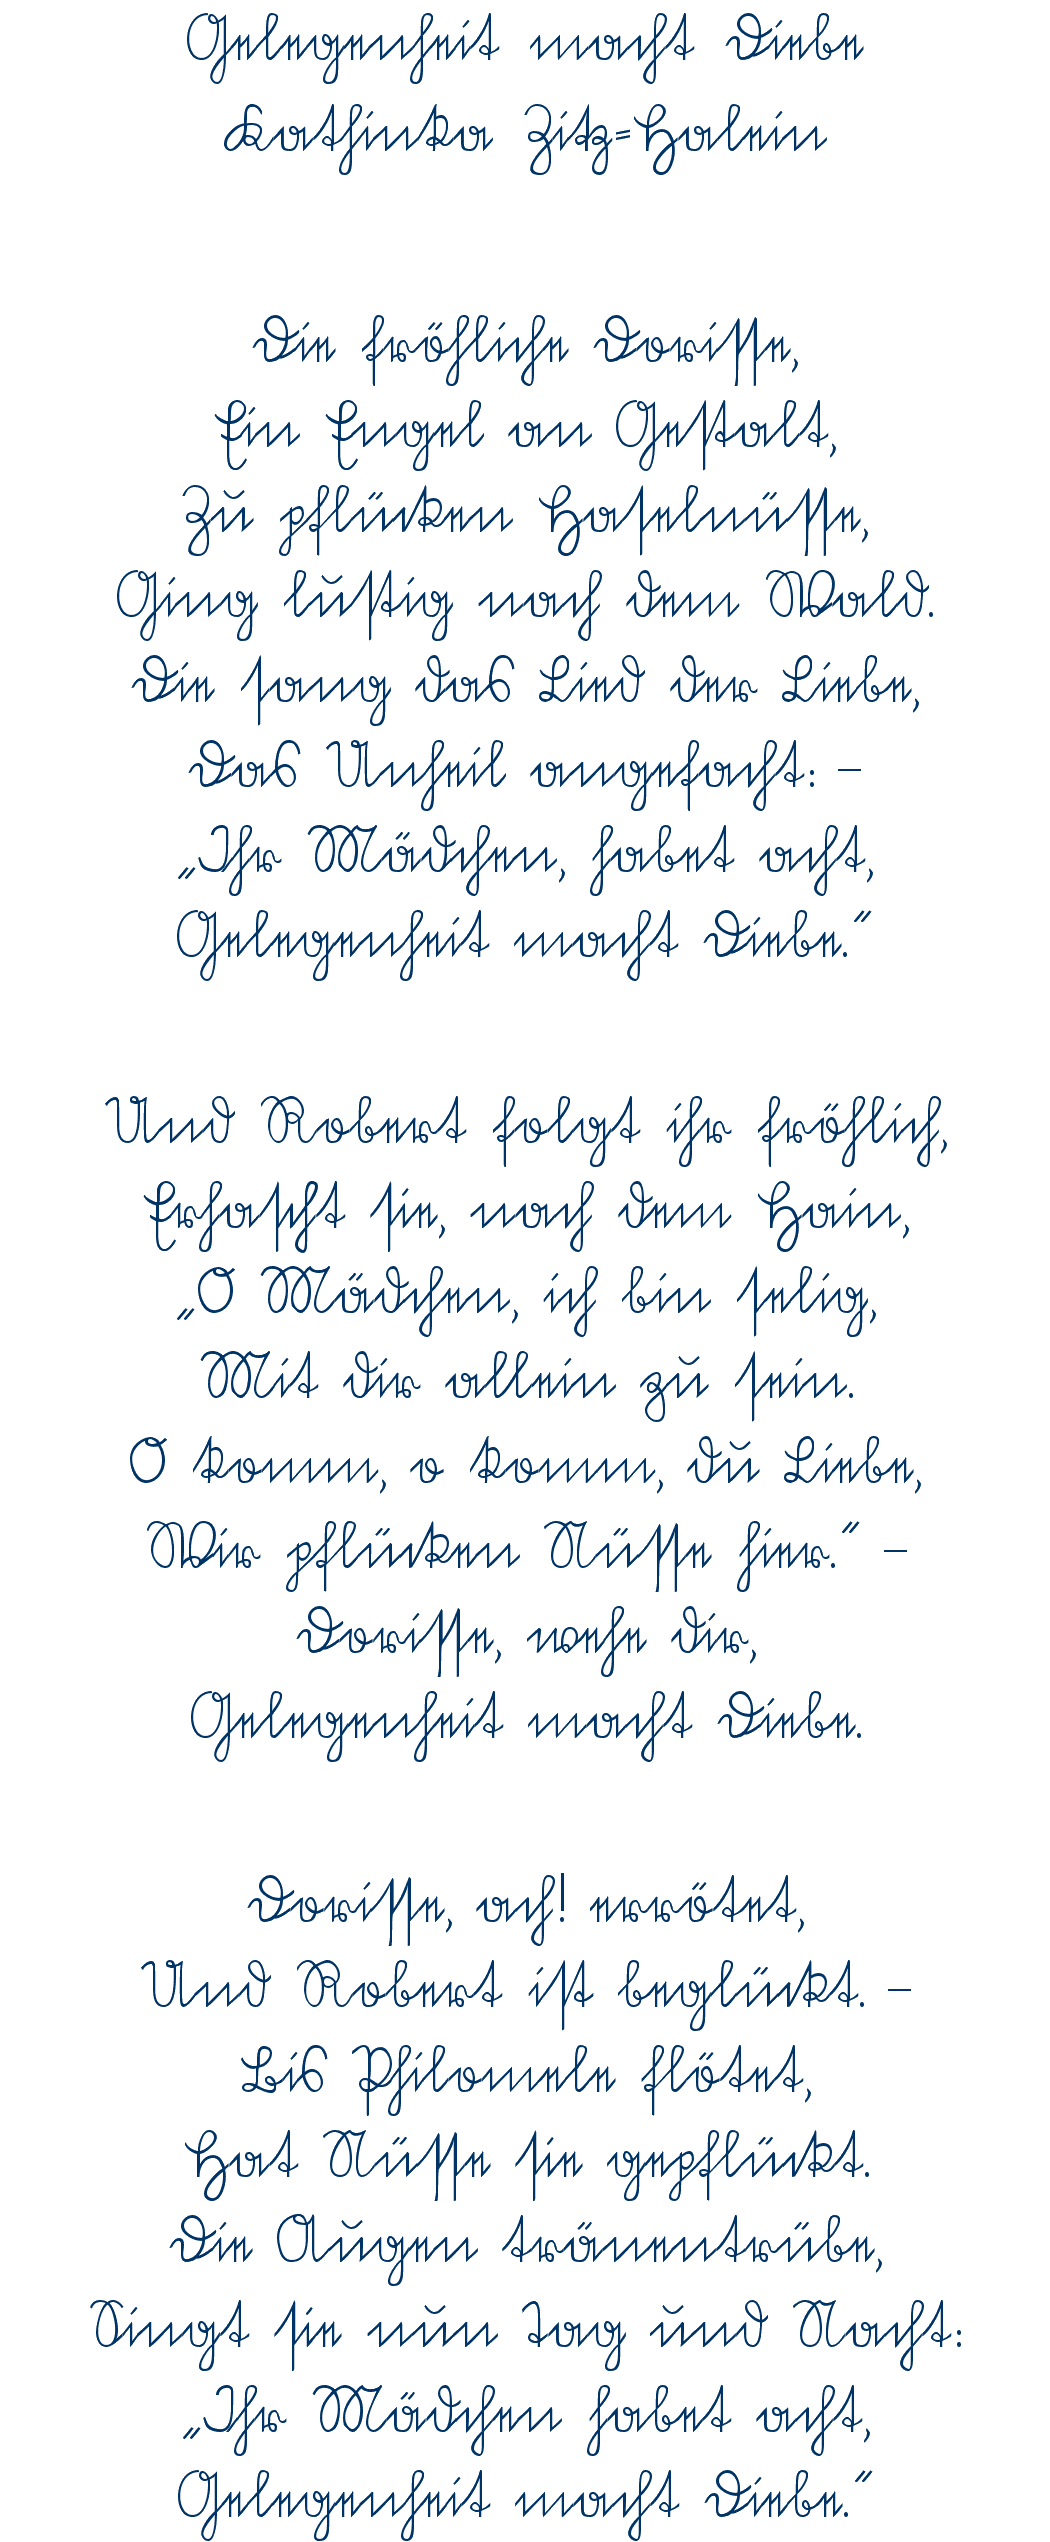 Gelegenheit macht Diebe
Kathinka Zitz-Halein
Die fröhliche Dorisse,
Ein Engel an Gestalt,
Zu pflücken Haselnüsse,
Ging lustig nach dem Wald.
Die sang das Lied der Liebe,
Das Unheil angefacht: –
„Ihr Mädchen, habet acht,
Gelegenheit macht Diebe.“
Und Robert folgt ihr fröhlich,
Erhascht sie, nach dem Hain,
„O Mädchen, ich bin selig,
Mit dir allein zu sein.
O komm, o komm, du Liebe,
Wir pflücken Nüsse hier.“ –
Dorisse, wehe dir,
Gelegenheit macht Diebe.
Dorisse, ach! errötet,
Und Robert ist beglückt. –
Bis Philomele flötet,
Hat Nüsse sie gepflückt.
Die Augen tränentrübe,
Singt sie nun Tag und Nacht:
„Ihr Mädchen habet acht,
Gelegenheit macht Diebe.“